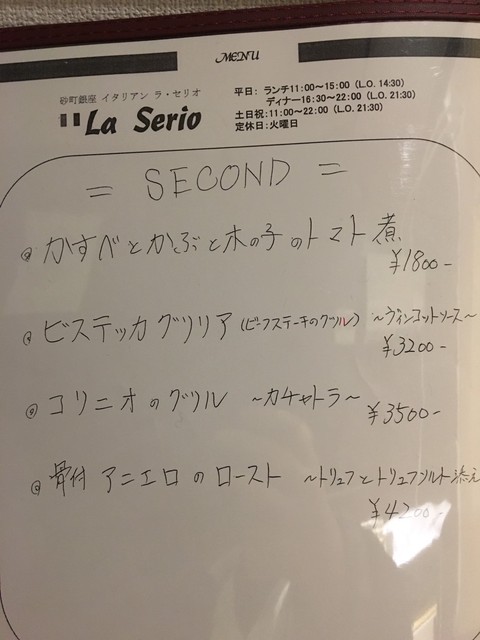 MENU
砂町銀座 イタリアン ラ・セリオ
"La Serio
平日: ランチ11:00〜15:00 (L.O. 14:30)
ディナー16:30〜22:00 (L.O. 21:30)
土日祝:11:00〜22:00 (L.O. 21:30)
定休日:火曜日
= SECOND =
かすべとかぶと木の子のトマト煮
¥1800-
ビステッカ グリリア (ビーフステーキのグリル) 〜ヴィンコットソース〜
¥3200-
コリニオのグリル 〜カチャトラ〜
¥3500-
骨付 アニエロのロースト 〜トリュフとトリュフソルト添え
¥4200-